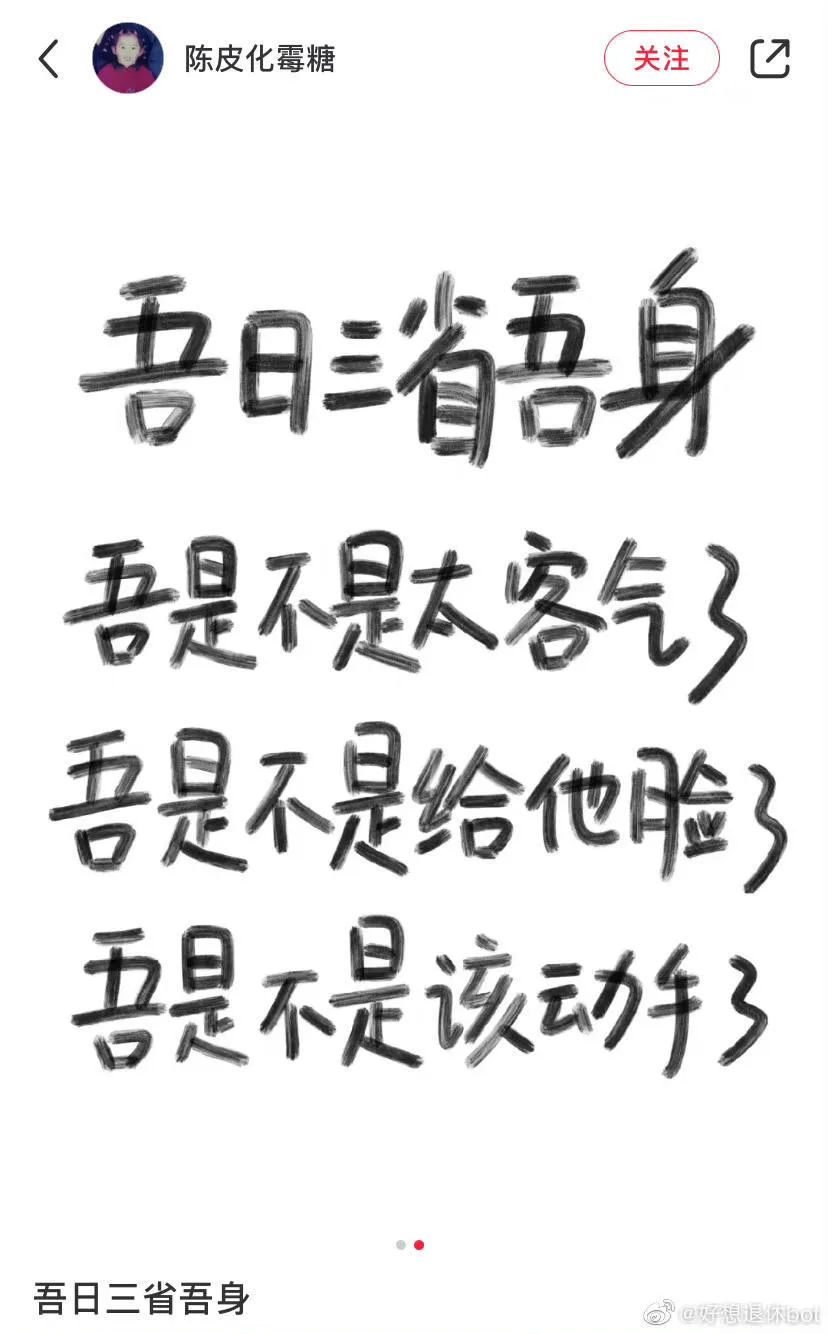 陈皮化霉糖
关注
吾日三省吾身
吾是不是太客气了
吾是不是给他脸了
吾是不是该动手了
吾日三省吾身
@好想退休bot